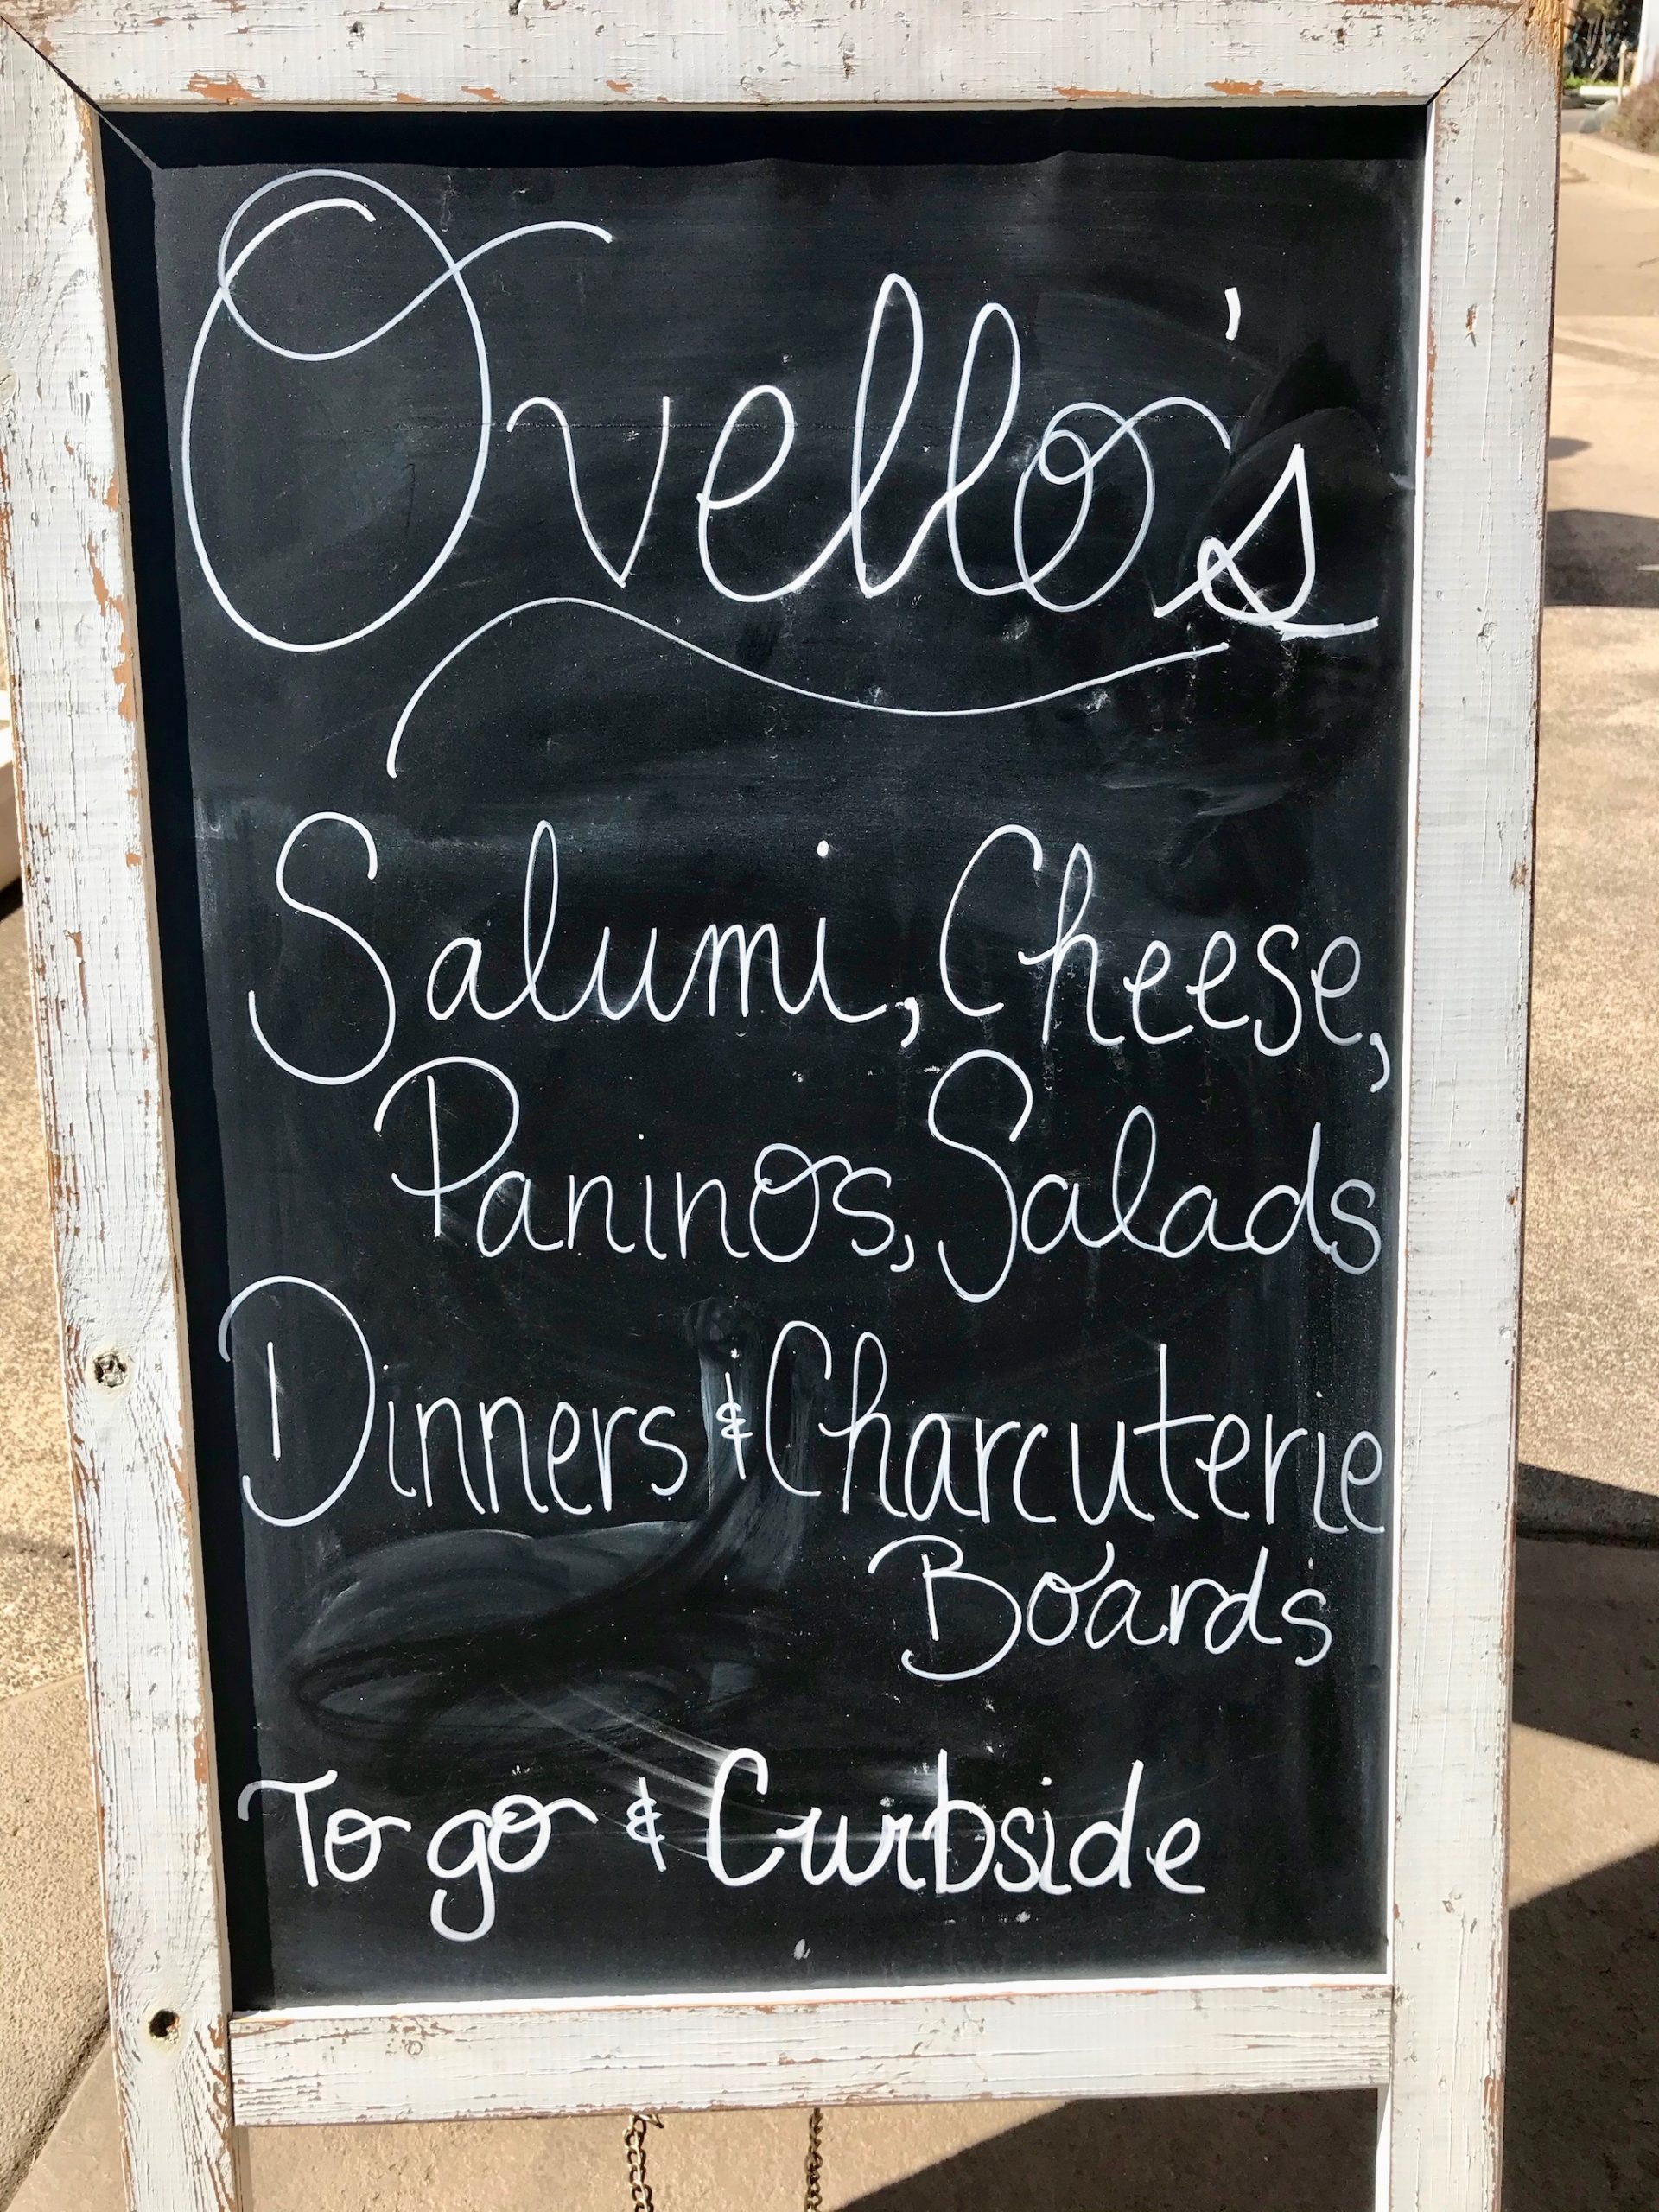 Ovello's
Salumi, Cheese,
Paninos, Salads
Dinners & Charcuterie
Boards
To go & Curbside